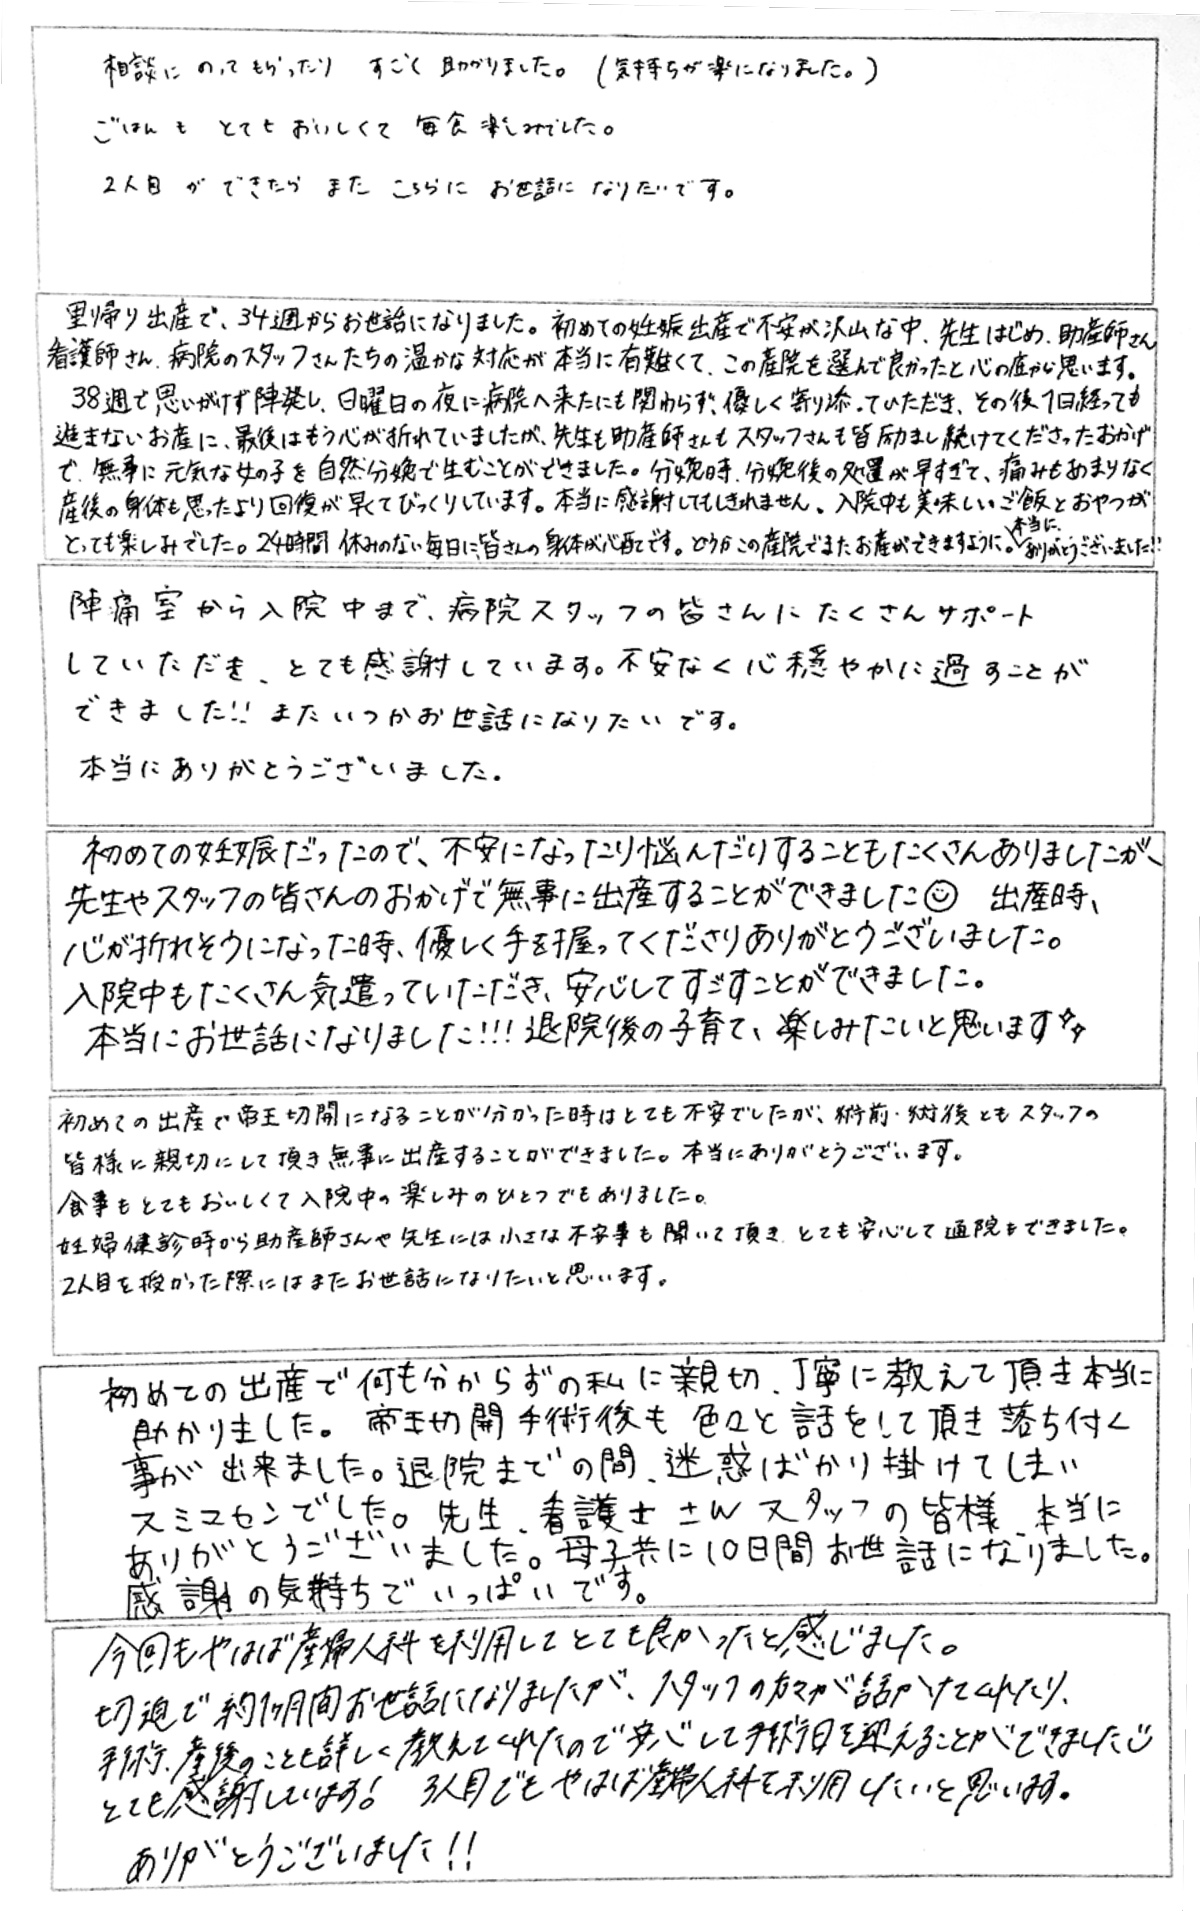 相談にのってもらったり すごく助かりました。(気持ちが楽になりました。)
ごはんも とてもおいしくて 毎食楽しみでした。
2人目ができたら また こちらに お世話に なりたいです。
里帰り出産で、34週からお世話になりました。初めての妊娠出産で不安が沢山な中、先生はじめ、助産師さん
看護師さん、病院のスタッフさんたちの温かな対応が本当に有難くて、この産院を選んで良かったと心の底から思います。
38週で思いがけず陣発し、日曜日の夜に病院へ来たにも関わらず、優しく寄り添っていただき、その後1日経っても
進まないお産に、最後はもう心が折れていましたが、先生も助産師さんもスタッフさんも皆励まし続けてくださったおかげ
で、無事に元気な女の子を自然分娩で生むことができました。分娩時、分娩後の処置が早すぎて、痛みもあまりなく
産後の身体も思ったより回復が早くてびっくりしています。本当に感謝してもしきれません。入院中も美味しいご飯とおやつが
とっても楽しみでした。24時間休みのない毎日に皆さんの身体が心配です。どうかこの産院でまたお産ができますように。本当にありがとうございました!!
陣痛室から入院中まで、病院スタッフの皆さんにたくさんサポート
していただき、とても感謝しています。不安なく心穏やかに過すことが
できました!! またいつかお世話になりたいです。
本当にありがとうございました。
初めての妊娠だったので、不安になったり悩んだりすることもたくさんありましたが、
先生やスタッフの皆さんのおかげで無事に出産することができました☺ 出産時、
心が折れそうになった時、優しく手を握ってくださりありがとうございました。
入院中もたくさん気遣っていただき、安心してすごすことができました。
本当にお世話になりました!!! 退院後の子育て、楽しみたいと思います✨
初めての出産で帝王切開になることが分かった時はとても不安でしたが、術前・術後ともスタッフの
皆様に親切にして頂き無事に出産することができました。本当にありがとうございます。
食事もとてもおいしくて入院中の楽しみのひとつでもありました。
妊婦健診時から助産師さんや先生には小さな不安事も聞いて頂き、とても安心して通院もできました。
2人目を授かった際にはまたお世話になりたいと思います。
初めての出産で何も分からずの私に親切、丁寧に教えて頂き本当に
助かりました。帝王切開手術後も色々と話をして頂き落ち付く
事が出来ました。退院までの間、迷惑ばかり掛けてしまい
スミマセンでした。先生、看護士さんスタッフの皆様、本当に
ありがとうございました。母子共に10日間お世話になりました。
感謝の気持ちでいっぱいです。
今回もやはば産婦人科を利用してとても良かったと感じました。
切迫で約1ヶ月間お世話になりましたが、スタッフの方々が話かけてくれたり、
手術、産後のことも詳しく教えてくれたので安心して手術日を迎えることができました☺
とても感謝しています! 3人目でもやはば産婦人科を利用したいと思います。
ありがとうございました!!